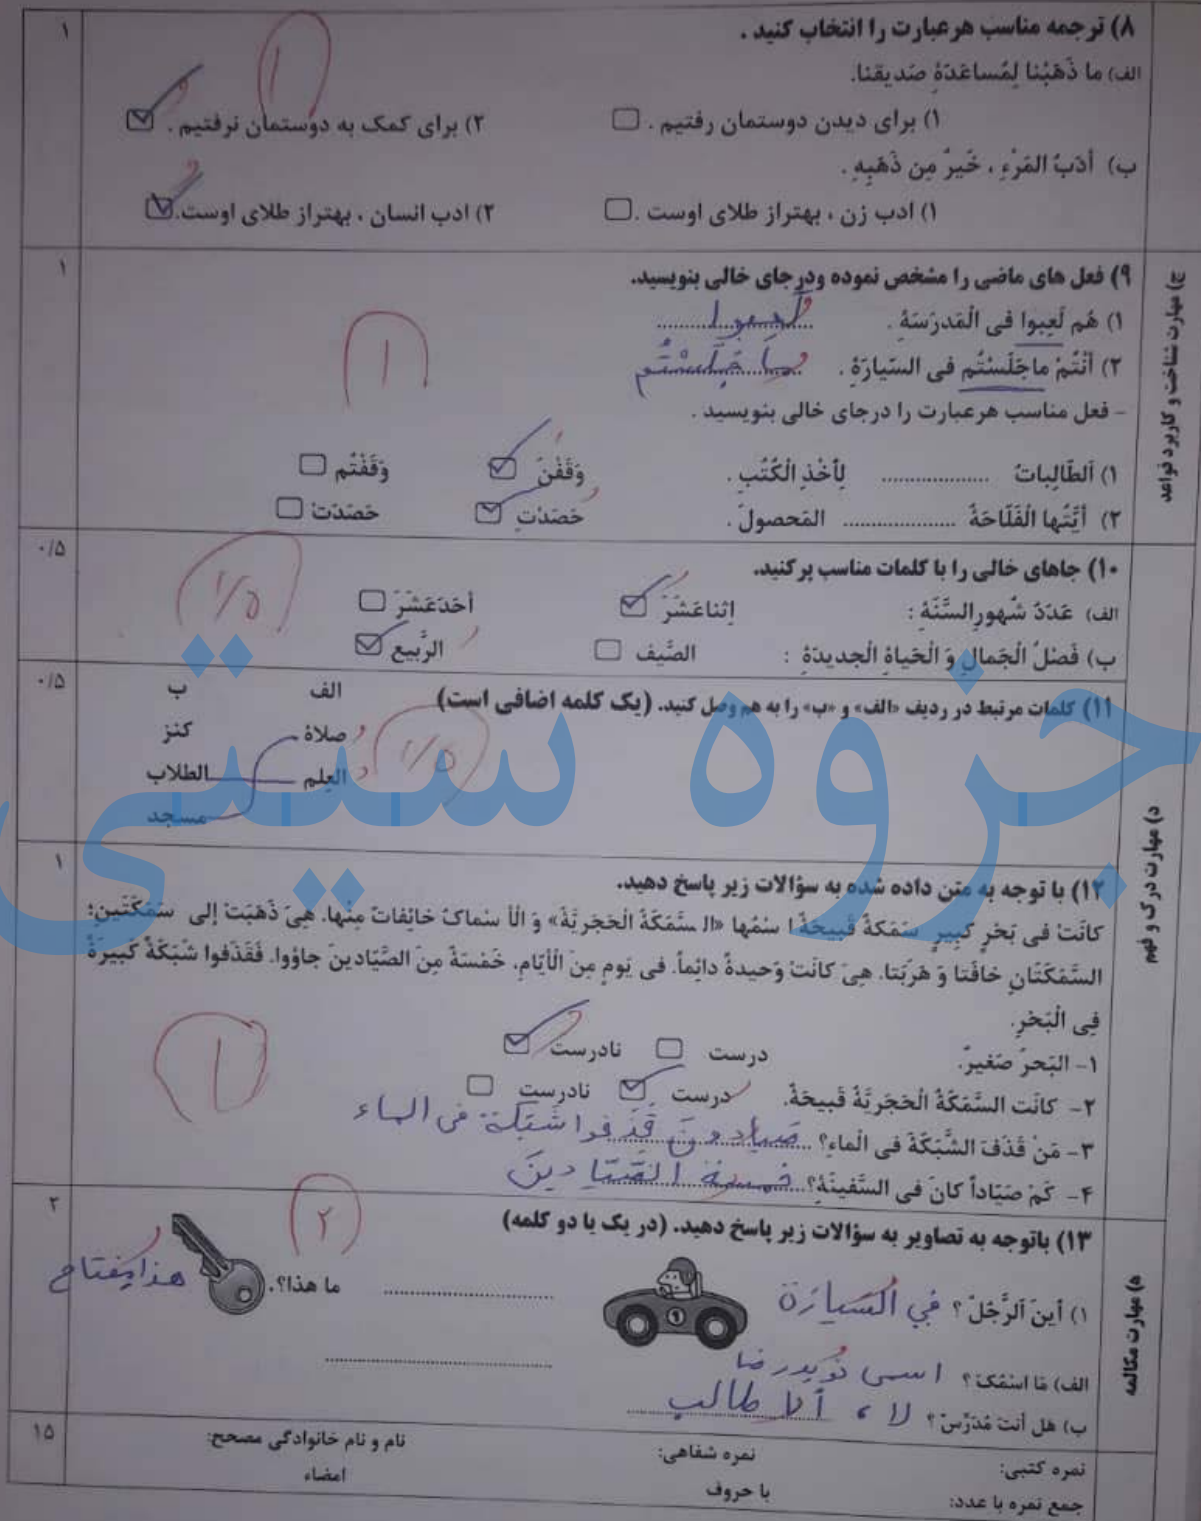 ۸) ترجمه مناسب هر عبارت را انتخاب کنید .
۱
الف) ما ذَهَبْنا لِمُساعَدَةِ صَدیقنا.
۱) برای دیدن دوستمان رفتیم . ۲) برای کمک به دوستمان نرفتیم .
۱
ب) أدَبُ المَرْءِ ، خَیرٌ مِن ذَهَبِهِ .
۱) ادب زن ، بهتراز طلای اوست . ۲) ادب انسان ، بهتراز طلای اوست.
ج) مهارت شناخت و کاربرد قواعد
۹) فعل های ماضی را مشخص نموده ودرجای خالی بنویسید.
۱
۱) هُم لَعِبوا فی الْمَدرَسَةِ . لَعِبوا
۲) أنْتُمْ ماجَلَسْتُم فی السَّیارَةِ . ما جَلَسْتُم
۱
- فعل مناسب هرعبارت را درجای خالی بنویسید .
۱) اَلطّالِباتُ .................. لِأخْذِ الْکُتُبِ . وَقَفْنَ وَقَفْتُم
۲) أیَّتُها الْفَلّاحَةُ .................. المَحصولَ . حَصَدْتِ حَصَدَتْ
د) مهارت درک و فهم
۱۰) جاهای خالی را با کلمات مناسب پرکنید.
۰/۵
الف) عَدَدُ شُهورِالسَّنَةِ : اِثناعَشَرَ أحَدَعَشَرَ
۰/۵
ب) فَصْلُ الْجَمالِ وَ الْحَیاةِ الْجدیدَةِ : الصَّیف الرَّبیع
۱۱) کلمات مرتبط در ردیف «الف» و «ب» را به هم وصل کنید. (یک کلمه اضافی است)
۰/۵
الف ب
صلاة کنز
العِلم الطلاب
مسجد
۰/۵
جزوه سیتی
۱۲) با توجه به متن داده شده به سؤالات زیر پاسخ دهید.
۱
کانَتْ فی بَحْرٍ کَبیرٍ سَمَکَةٌ قَبیحَةٌ ا سْمُها «الـ سَّمَکَةُ الْحَجَریَّةُ» وَ الْأ سْماکُ خائِفاتٌ مِنْها. هِیَ ذَهَبَتْ إلی سَمَکَتَینِ؛
السَّمَکَتانِ خافَتا وَ هَرَبَتا. هِیَ کانَتْ وَحیدةً دائِماً. فی یَومٍ مِنَ الْأیّامِ، خَمْسَةٌ مِنَ الصَّیّادینَ جاؤوا. فَقَذَفوا شَبَکَةً کَبیرَةً
فِی الْبَحْرِ.
۱- البَحرُ صَغیرٌ. درست نادرست
۲- کانَت السَّمَکَةُ الْحَجَریَّةُ قَبیحَةً. درست نادرست
۱
۳- مَنْ قَذَفَ الشَّبَکَةَ فی الْماءِ؟ صَیادونَ قَذَفوا شَبَکَة فی الماء
۴- کَمْ صَیّاداً کانَ فی السَّفینَةِ؟ خمسة الصَّیّادینَ
ه) مهارت مکالمه
۱۳) باتوجه به تصاویر به سؤالات زیر پاسخ دهید. (در یک یا دو کلمه)
۲
۲
۱) أینَ اَلرَّجُلُ ؟ في السَّیارَة ما هذا؟. هذا مِفتاح
الف) مَا اسْمُکَ ؟ اسمی نویدرضا
ب) هَل أنتَ مُدَرِّسٌ ؟ لا ، أنا طالب
نمره کتبی: نمره شفاهی: نام و نام خانوادگی مصحح:
۱۵
جمع نمره با عدد: با حروف امضاء